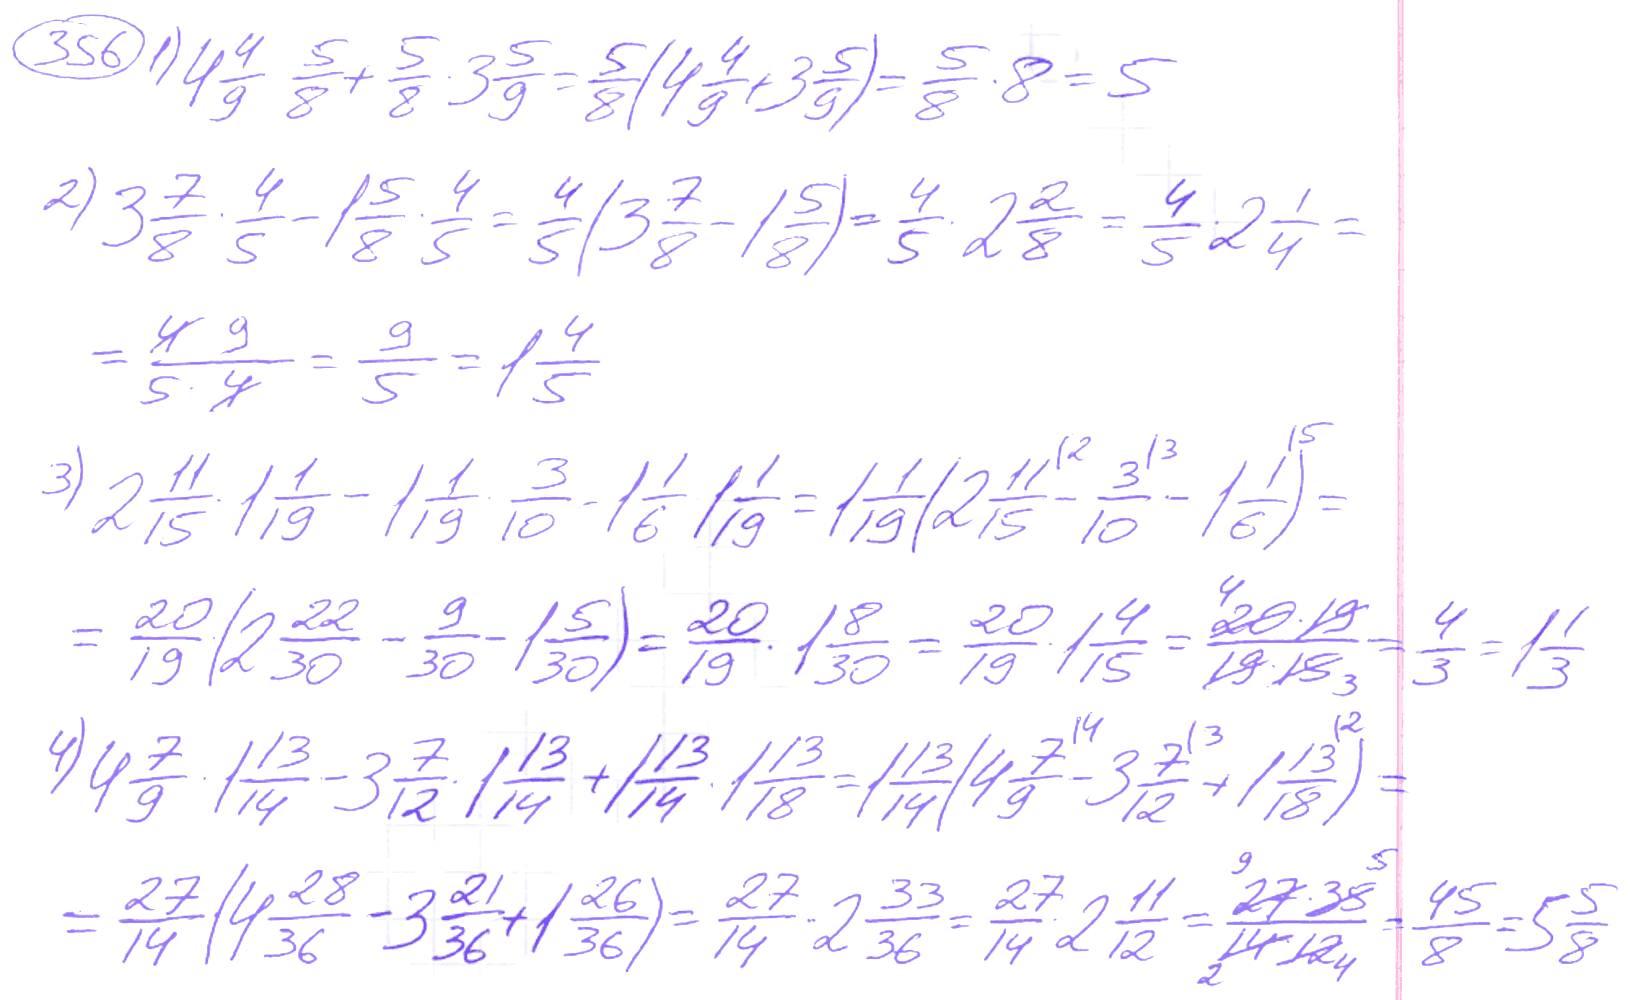 356 1) 4 4/9 5/8 + 5/8 · 3 5/9 = 5/8 (4 4/9 + 3 5/9) = 5/8 · 8 = 5
2) 3 7/8 · 4/5 - 1 5/8 · 4/5 = 4/5 (3 7/8 - 1 5/8) = 4/5 · 2 2/8 = 4/5 · 2 1/4 =
= 4 9/5 · 4 = 9/5 = 1 4/5
3) 2 11/15 · 1 1/19 - 1 1/19 · 3/10 - 1 1/6 1 1/19 = 1 1/19 (2 11/15 \2 - 3/10 \3 - 1 1/6 \5) =
= 20/19 (2 22/30 - 9/30 - 1 5/30) = 20/19 · 1 8/30 = 20/19 · 1 4/15 = 4 20 · 19/19 · 15 3 = 4/3 = 1 1/3
4) 4 7/9 · 1 13/14 - 3 7/12 · 1 13/14 + 1 13/14 · 1 13/18 = 1 13/14 (4 7/9 \4 - 3 7/12 \3 + 1 13/18 \2) =
= 27/14 (4 28/36 - 3 21/36 + 1 26/36) = 27/14 · 2 33/36 = 27/14 · 2 11/12 = 9 27 · 35 5/2 14 · 12 4 = 45/8 = 5 5/8